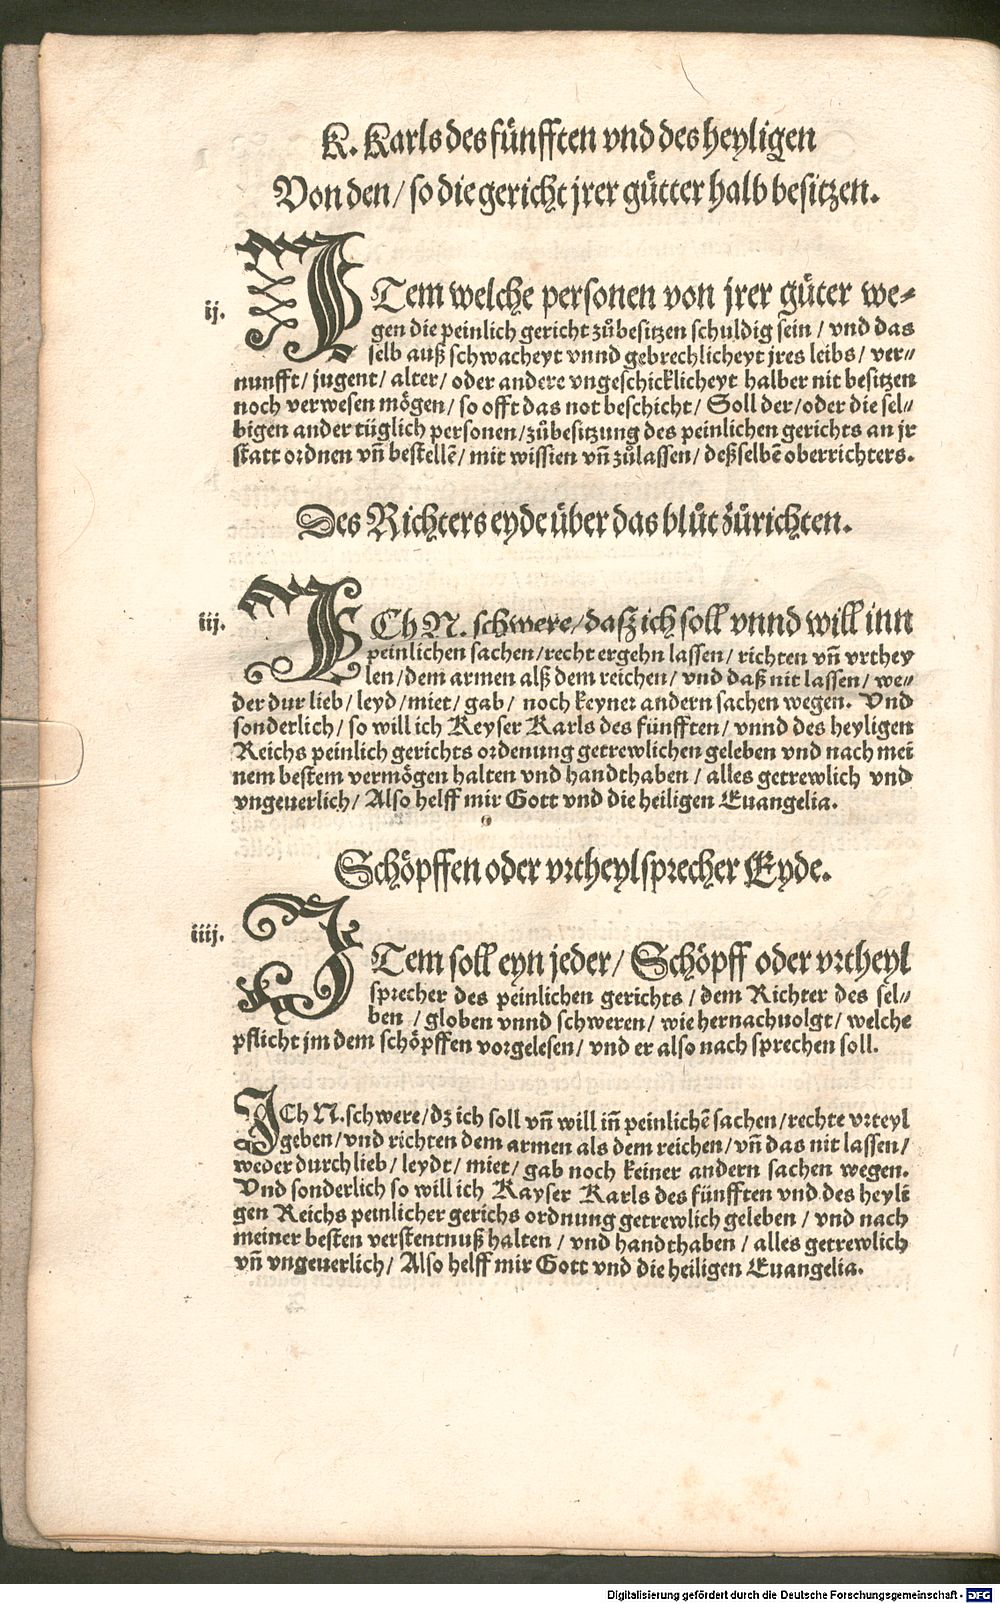 K. Karls des fünfften vnd des heyligen
Von den / so die gericht jrer gütter halb besitzen.
ij.
ITem welche personen von jrer güter we⸗
gen die peinlich gericht zůbesitzen schuldig sein / vnd das
selb auß schwacheyt vnnd gebrechlicheyt jres leibs / ver⸗
nunfft / jugent / alter / oder andere vngeschicklicheyt halber nit besitzen
noch verwesen mögen / so offt das not beschicht / Soll der / oder die sel⸗
bigen ander tüglich personen / zůbesitzung des peinlichen gerichts an jr
statt ordnen vñ bestellẽ / mit wissien vñ zůlassen / deßselbẽ oberrichters.
Des Richters eyde über das blůt zůrichten.
iij.
ICh N. schwere / daß ich soll vnnd will inn
peinlichen sachen / recht ergehn lassen / richten vñ vrthey
len / dem armen alß dem reichen / vnd daß nit lassen / we⸗
der dur lieb / leyd / miet / gab / noch keyner andern sachen wegen. Vnd
sonderlich / so will ich Keyser Karls des fünfften / vnnd des heyligen
Reichs peinlich gerichts ordenung getrewlichen geleben vnd nach mei
nem bestem vermögen halten vnd handthaben / alles getrewlich vnd
vngeuerlich / Also helff mir Gott vnd die heiligen Euangelia.
Schöpffen oder vrtheylsprecher Eyde.
iiij.
ITem soll eyn jeder / Schöpff oder vrtheyl
sprecher des peinlichen gerichts / dem Richter des sel⸗
ben / globen vnnd schweren / wie hernachuolgt / welche
pflicht jm dem schöpffen vorgelesen / vnd er also nach sprechen soll.
ICh N. schwere / dz ich soll vñ will iñ peinlichẽ sachen / rechte vrteyl
geben / vnd richten dem armen als dem reichen / vñ das nit lassen /
weder durch lieb / leydt / miet / gab noch keiner andern sachen wegen.
Vnd sonderlich so will ich Kayser Karls des fünfften vnd des heyli
gen Reichs peinlicher gerichs ordnung getrewlich geleben / vnd nach
meiner besten verstentnuß halten / vnd handthaben / alles getrewlich
vñ vngeuerlich / Also helff mir Gott vnd die heiligen Euangelia.
Digitalisierung gefördert durch die Deutsche Forschungsgemeinschaft - DFG